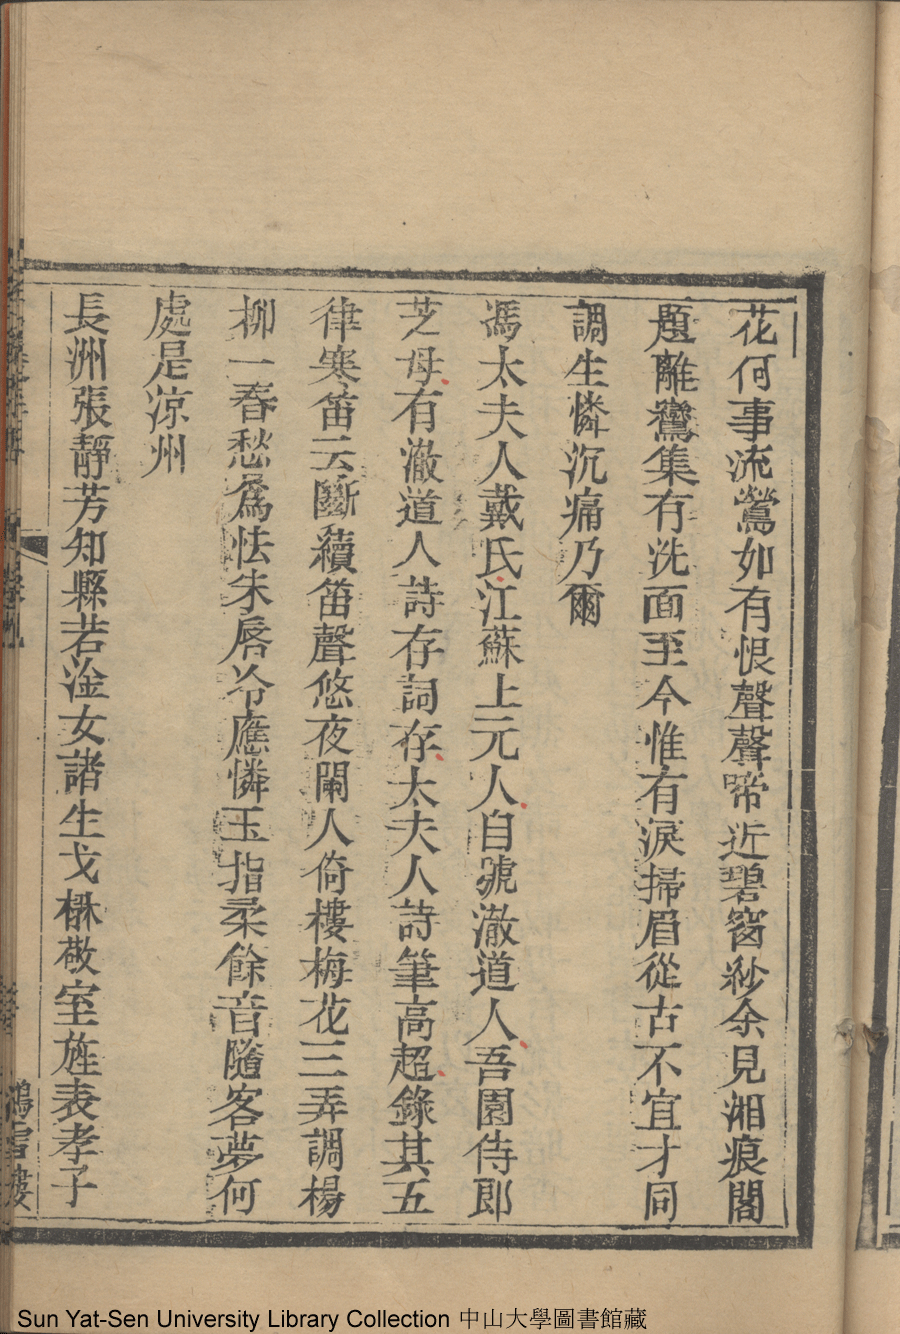 花何事流鶯如有恨聲聲啼近碧窗紗余見湘痕閣
題離鸞集有洗面至今惟有淚掃眉從古不宜才同
調生憐沉痛乃爾
馮太夫人戴氏江蘇上元人自號澈道人吾園侍郎
芝母有澈道人詩存詞存太夫人詩筆高超錄其五
律寒笛云斷續笛聲悠夜闌人倚樓梅花三弄調楊
柳一春愁爲怯朱唇冷應憐玉指柔餘音隨客夢何
處是凉州
長洲張靜芳知縣若淦女諸生戈楙敬室旌表孝子
鴻雪樓
Sun Yat-Sen University Library Collection 中山大學圖書館藏